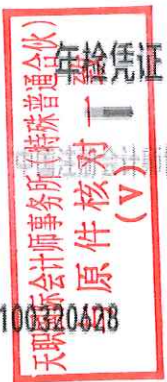 年检凭证
天职国际会计师事务所(特殊普通合伙)
原件核对一致
(V)
100320628